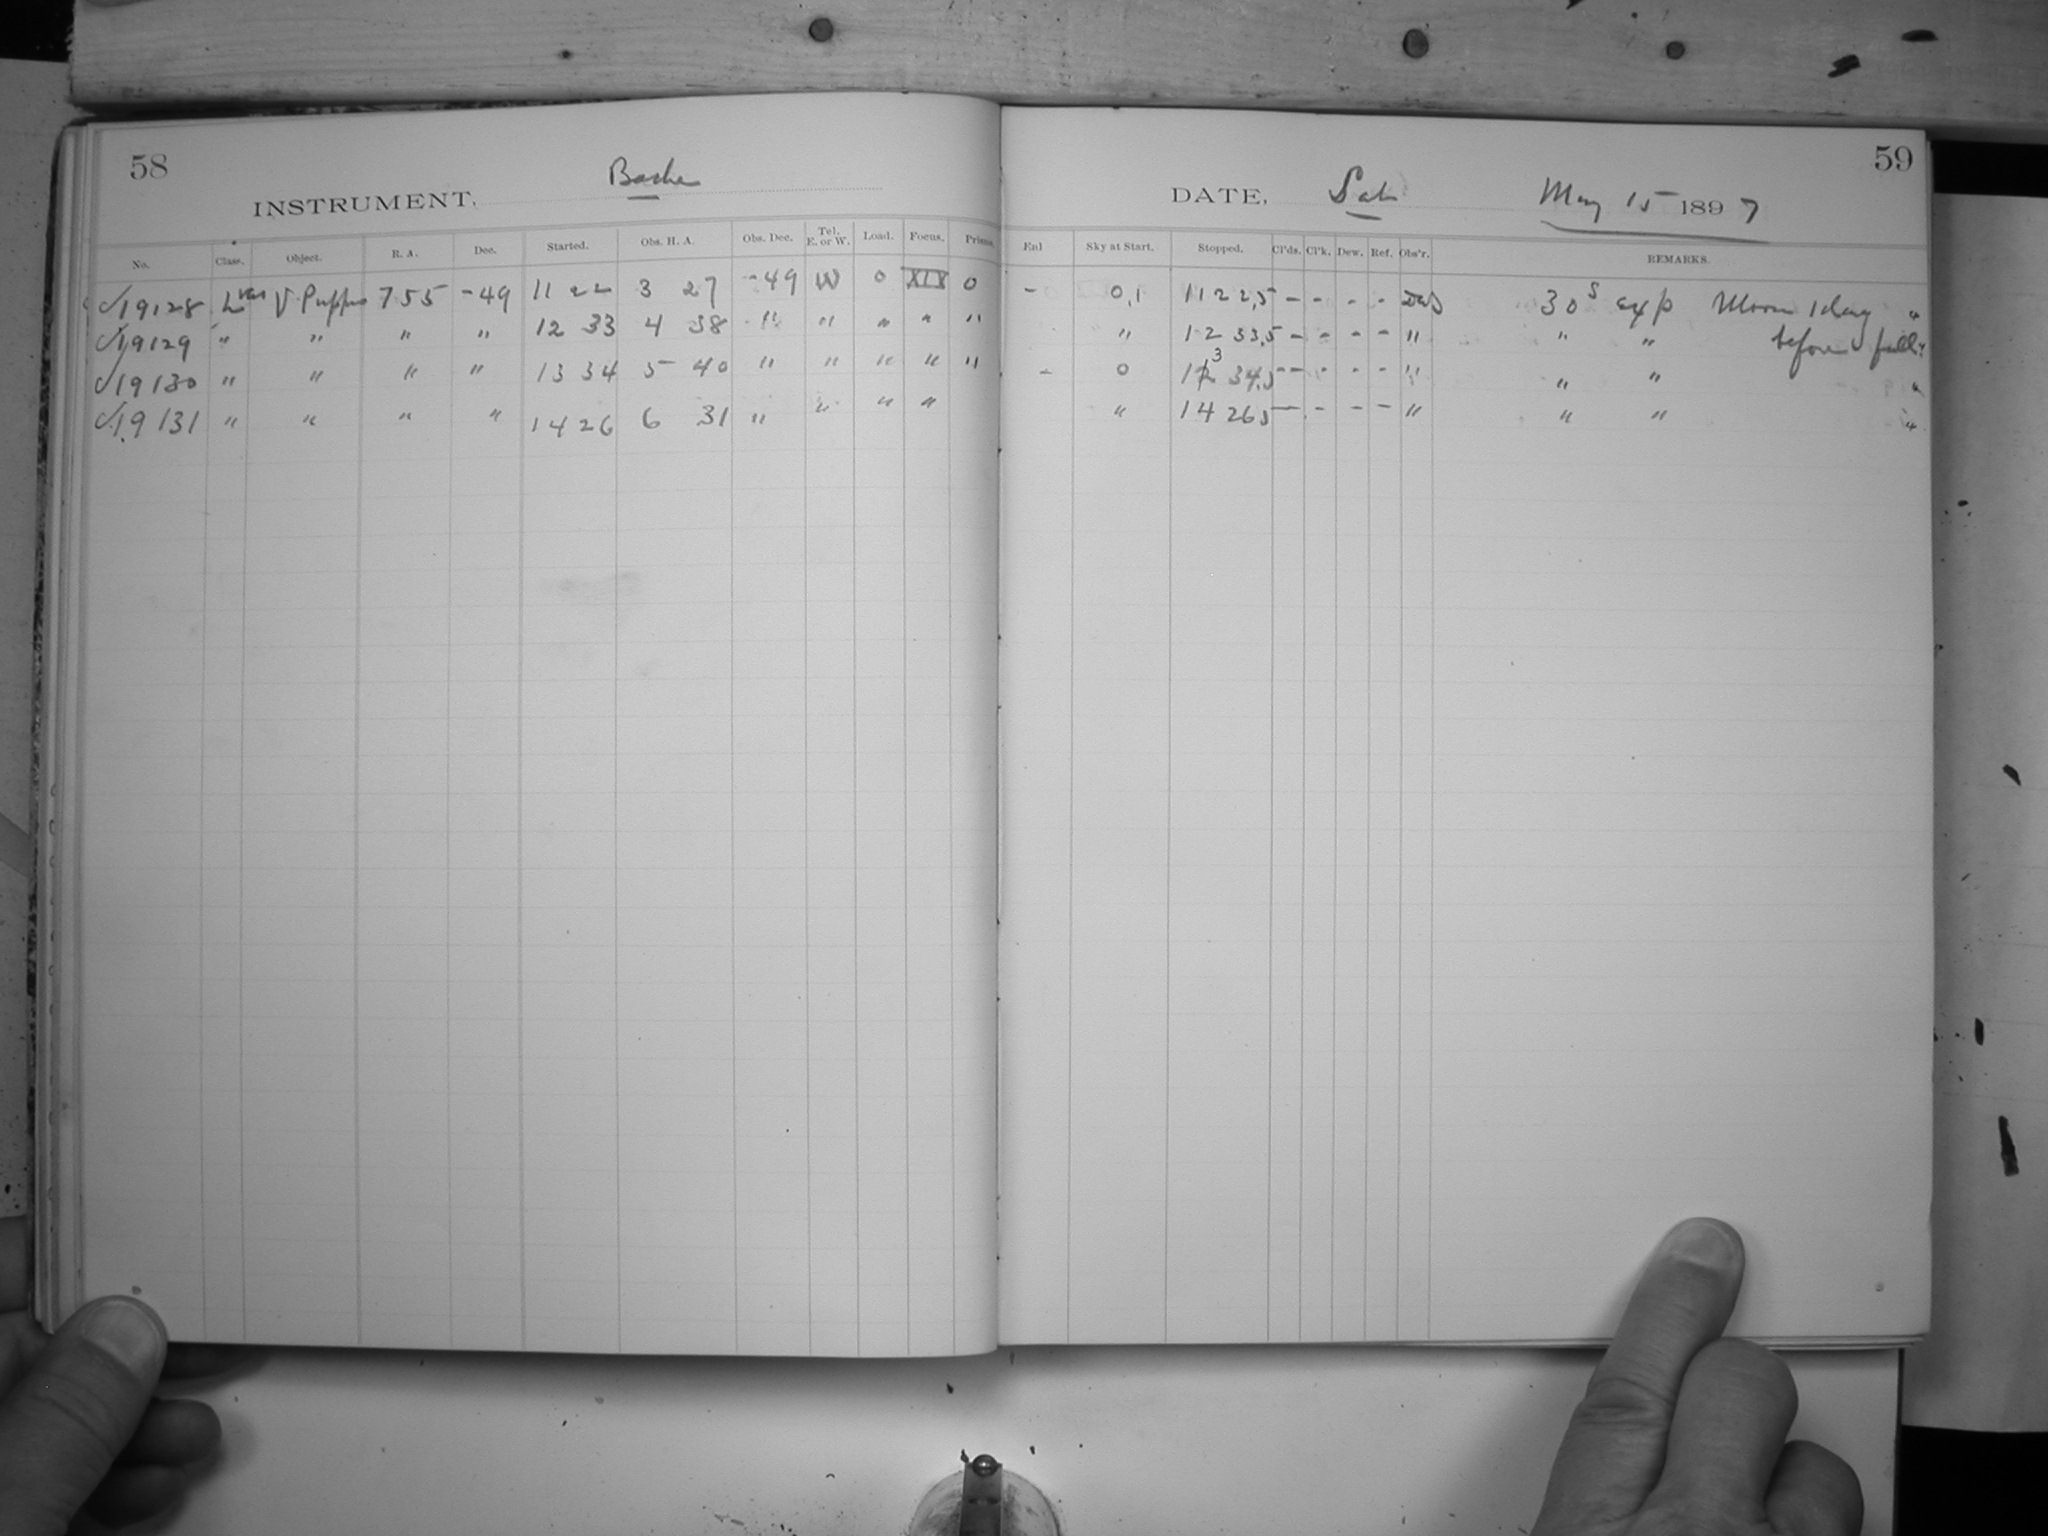 58
INSTRUMENT, Bache
No. Class. Object. R. A. Dec. Started. Obs. H. A. Obs. Dec. Tel. E. or W. Load. Focus. Prism.
19128 L var V Puppis 7 55 -49 11 22 3 27 -49 W 0 XIX 0
19129 " " " " 12 33 4 38 " " " " "
19130 " " " " 13 34 5 40 " " " " "
19131 " " " " 14 26 6 31 " " " "
59
DATE, Sat May 15 1897
Enl Sky at Start. Stopped. Cl'ds. Cl'k. Dew. Ref. Obs'r. REMARKS.
- 0,1 11 22,5 - - - - 30 s exp Moon 1 day "
" 12 33,5 - - - - " " " before full "
- 0 13 34,5 - - - - " " " "
" 14 26 5 - - - - " " " "